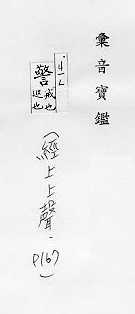 彙音寶鑑
警 戒也
(經上上聲.
P167)